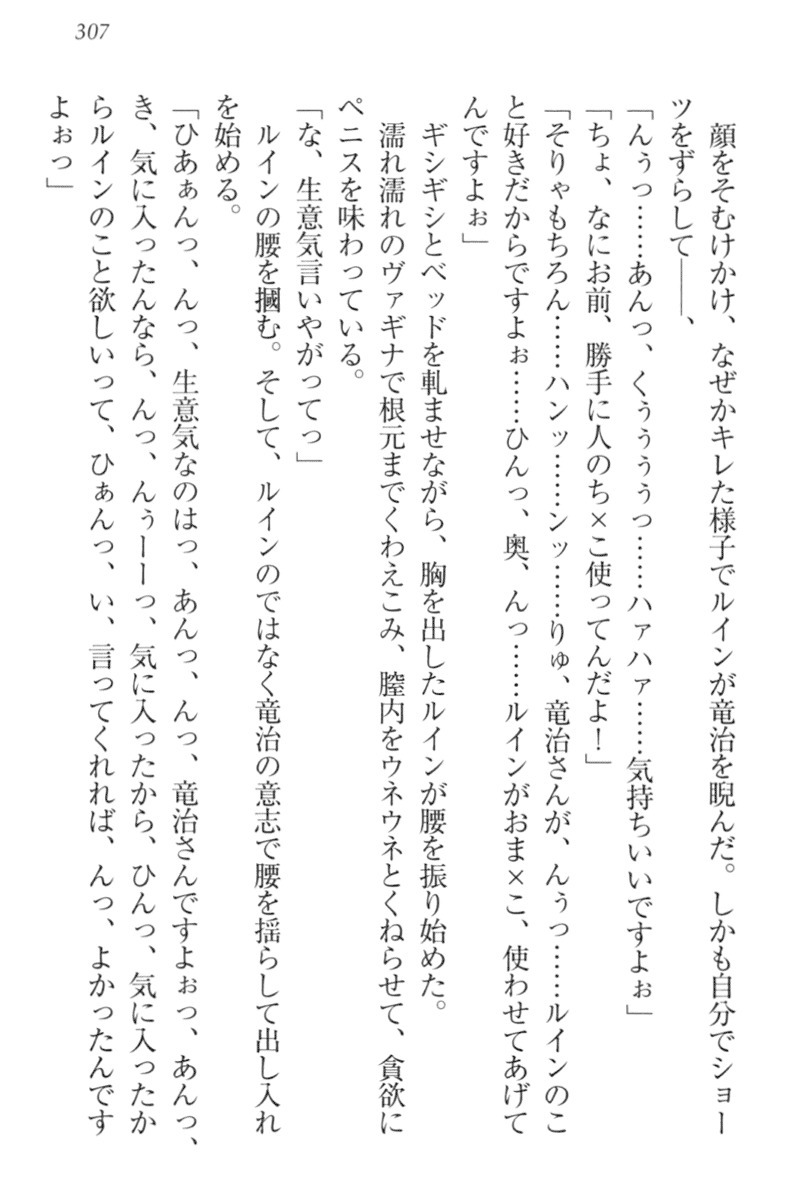 307
顔をそむけかけ、なぜかキレた様子でルインが竜治を睨んだ。しかも自分でショー
ツをずらして――、
「んぅっ……あんっ、くぅぅぅぅっ……ハァハァ……気持ちいいですよぉ」
「ちょ、なにお前、勝手に人のち×こ使ってんだよ！」
「そりゃもちろん……ハンッ……ンッ……りゅ、竜治さんが、んぅっ……ルインのこ
と好きだからですよぉ……ひんっ、奥、んっ……ルインがおま×こ、使わせてあげて
んですよぉ」
ギシギシとベッドを軋ませながら、胸を出したルインが腰を振り始めた。
濡れ濡れのヴァギナで根元までくわえこみ、膣内をウネウネとくねらせて、貪欲に
ペニスを味わっている。
「な、生意気言いやがってっ」
ルインの腰を摑む。そして、ルインのではなく竜治の意志で腰を揺らして出し入れ
を始める。
「ひあぁんっ、んっ、生意気なのはっ、あんっ、んっ、竜治さんですよぉっ、あんっ、
き、気に入ったんなら、んっ、んぅーーっ、気に入ったから、ひんっ、気に入ったか
らルインのこと欲しいって、ひぁんっ、い、言ってくれれば、んっ、よかったんです
よぉっ」